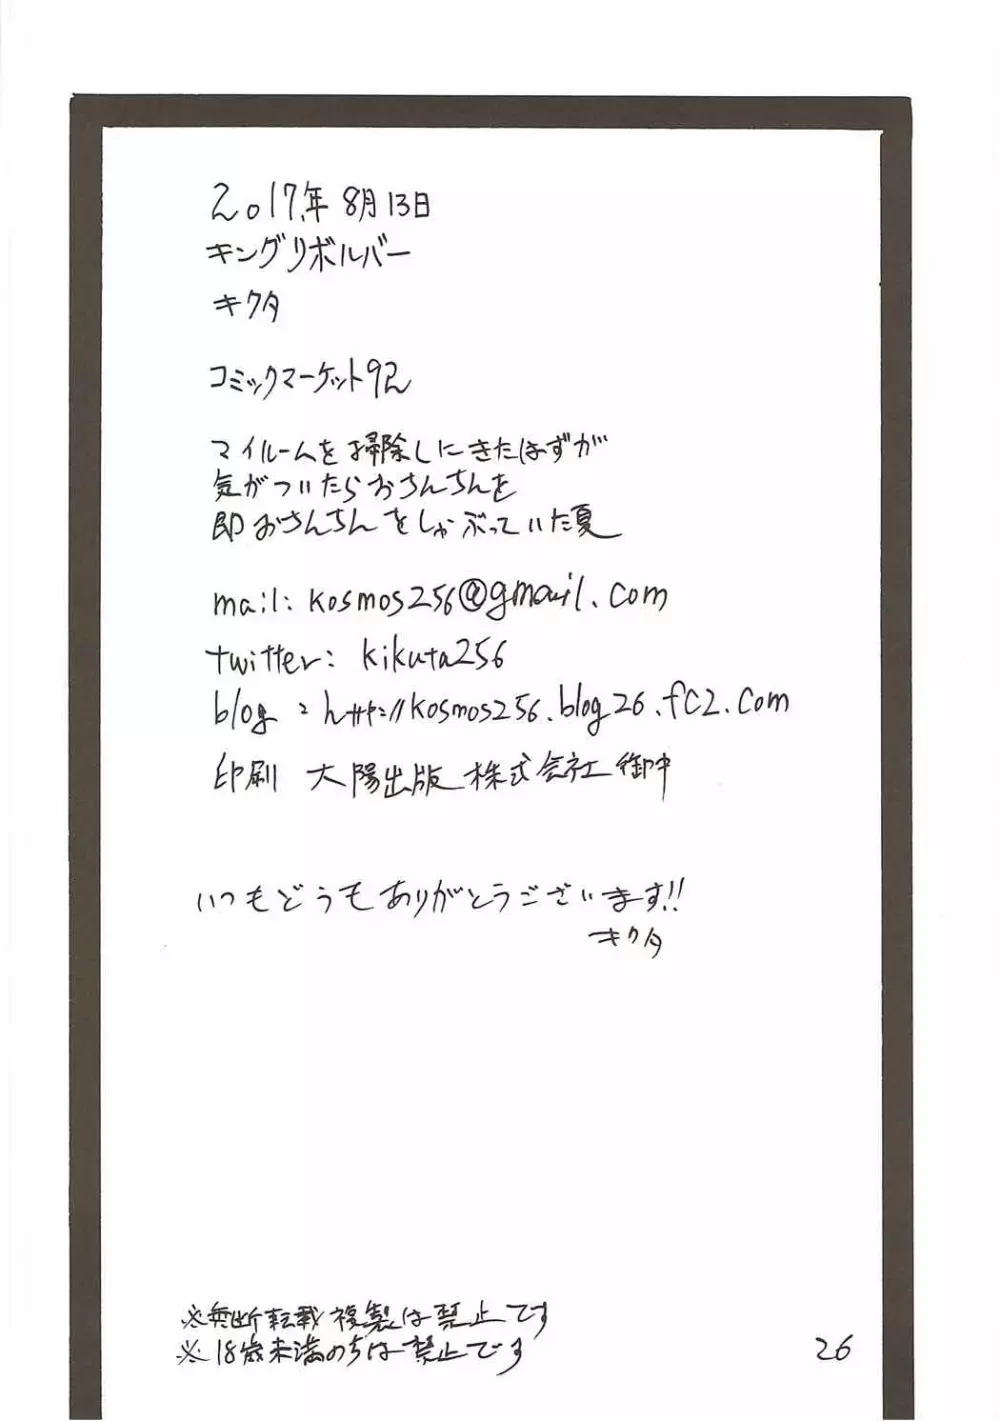 2017年8月13日
キングリボルバー
キクタ
コミックマーケット92
マイルームを掃除しにきたはずが
気がついたらおちんちんを
即おちんちんをしゃぶっていた夏
mail: kosmos256@gmail.com
twitter: kikuta256
blog: http://kosmos256.blog26.fc2.com
印刷 大陽出版株式会社御中
いつもどうもありがとうございます!!
キクタ
※無断転載複製は禁止です
※18歳未満のちは禁止です
26